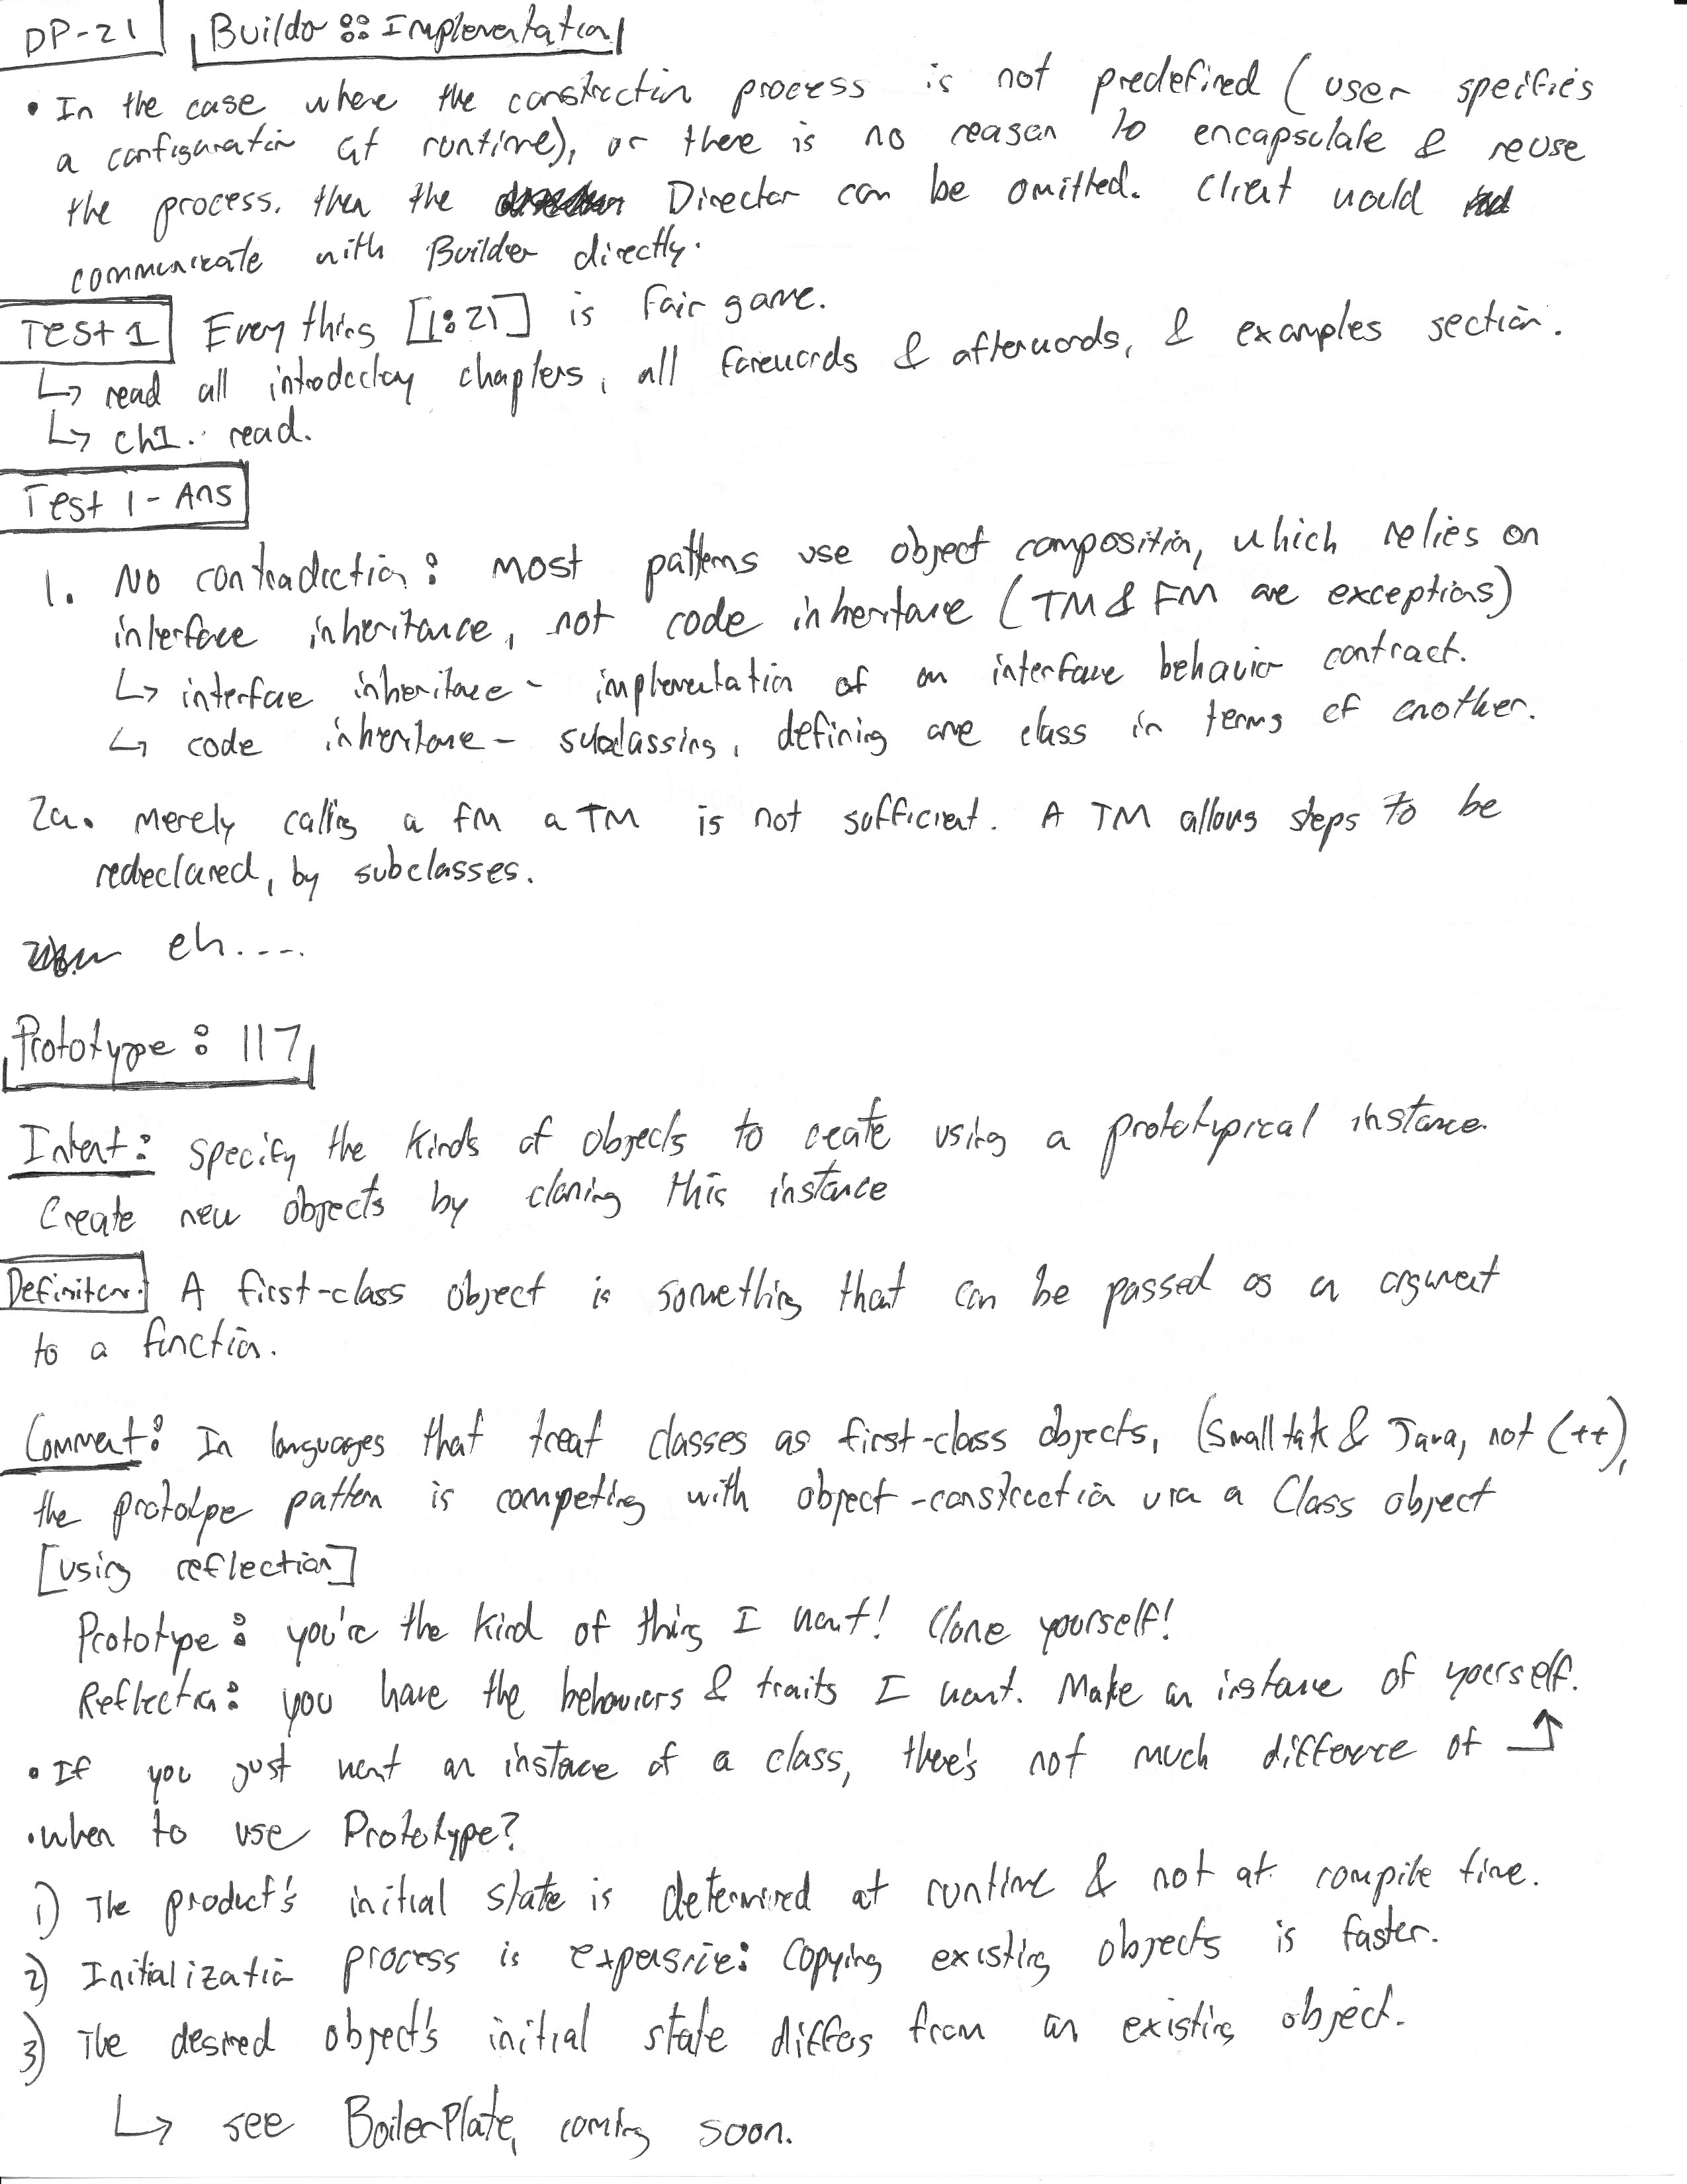 DP-21 Builder :: Implementation
• In the case where the construction process is not predefined (user specifies
a configuration at runtime), or there is no reason to encapsulate & reuse
the process. then the Director can be omitted. Client would
communicate with Builder directly.
Test 1 Everything [1:21] is fair game.
↳ read all introductory chapters, all forewords & afterwords, & examples section.
↳ ch1. read.
Test 1 - Ans
1. No contradiction: most patterns use object composition, which relies on
interface inheritance, not code inheritance (TM & FM are exceptions)
↳ interface inheritance - implementation of an interface behavior contract.
↳ code inheritance - subclassing, defining one class in terms of another.
2a. Merely calling a FM a TM is not sufficient. A TM allows steps to be
redeclared, by subclasses.
eh....
Prototype: 117
Intent: specify the kinds of objects to create using a prototypical instance.
Create new objects by cloning this instance
Definition: A first-class object is something that can be passed as an argument
to a function.
Comment: In languages that treat classes as first-class objects, (Smalltalk & Java, not C++),
the prototype pattern is competing with object-construction via a Class object
[using reflection]
Prototype: you're the kind of thing I want! Clone yourself!
Reflection: you have the behaviors & traits I want. Make an instance of yourself.
• If you just want an instance of a class, there's not much difference of ↑
• when to use Prototype?
1) The product's initial state is determined at runtime & not at compile time.
2) Initialization process is expensive: Copying existing objects is faster.
3) The desired object's initial state differs from an existing object.
↳ see BoilerPlate, coming soon.